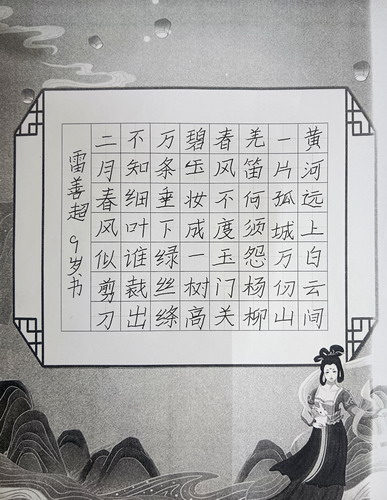 黄河远上白云间
一片孤城万仞山
羌笛何须怨杨柳
春风不度玉门关
碧玉妆成一树高
万条垂下绿丝绦
不知细叶谁裁出
二月春风似剪刀
雷善超 9岁书